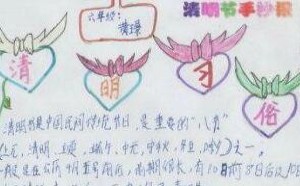 六年级:
黄
清明节手抄报
清
明
习
俗
清明节是中国民间传统节日,是重要的"八节"
元,清明,立夏,端午,中元,中秋,冬至,除夕)之一,
一般是在公历4月5号前后,节期很长,有10日前8日后及10